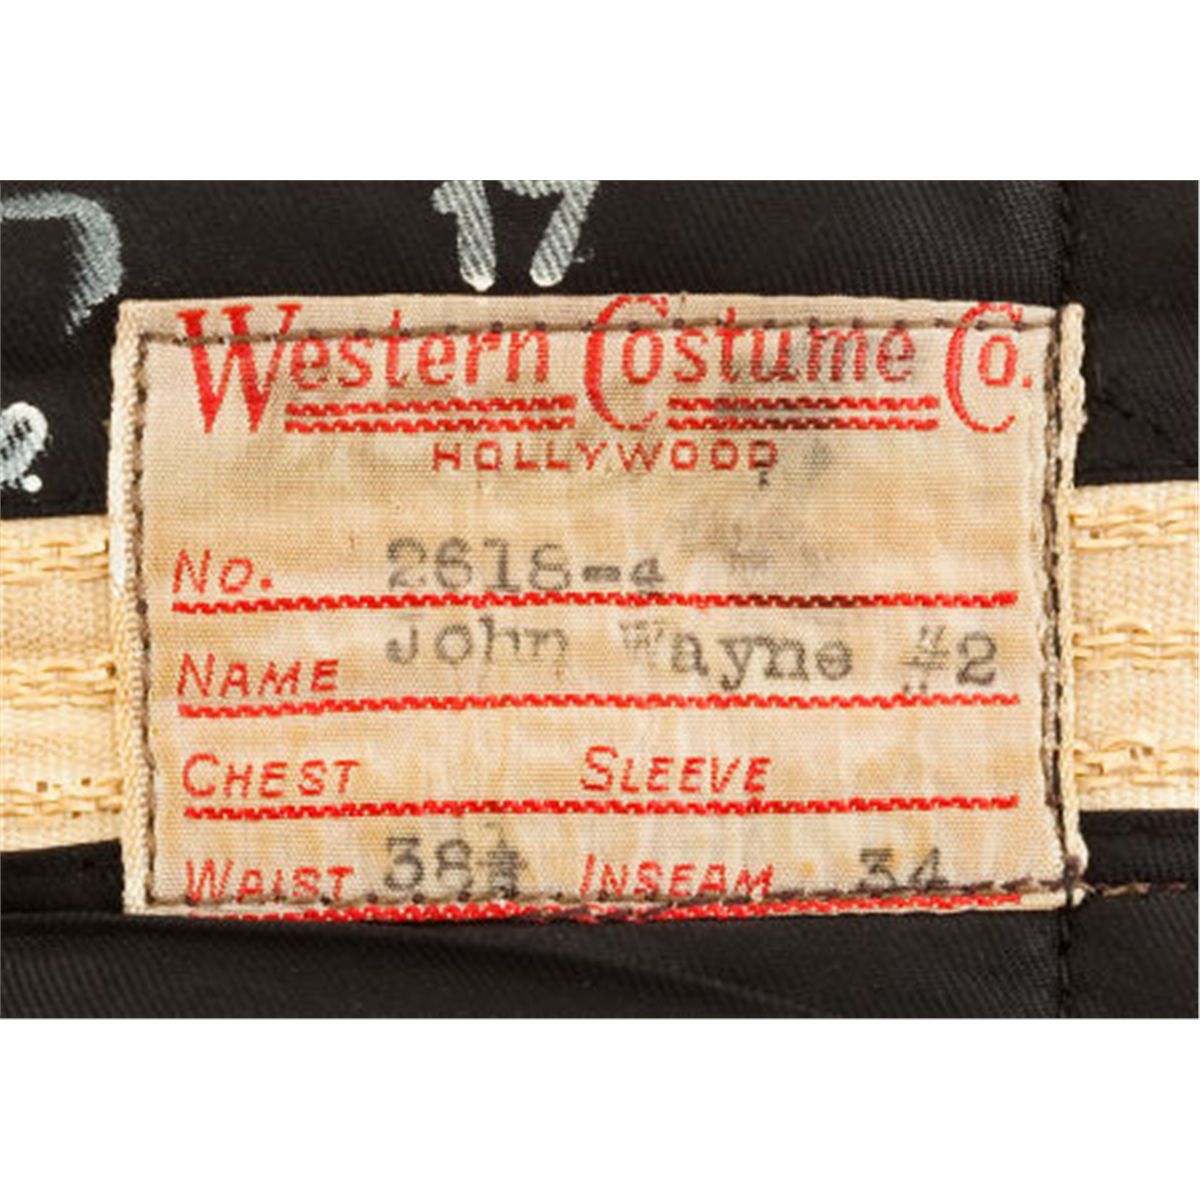 17
Western Costume Co.
HOLLYWOOD
No. 2618-4
NAME John Wayne #2
CHEST SLEEVE
WAIST 38½ INSEAM 34